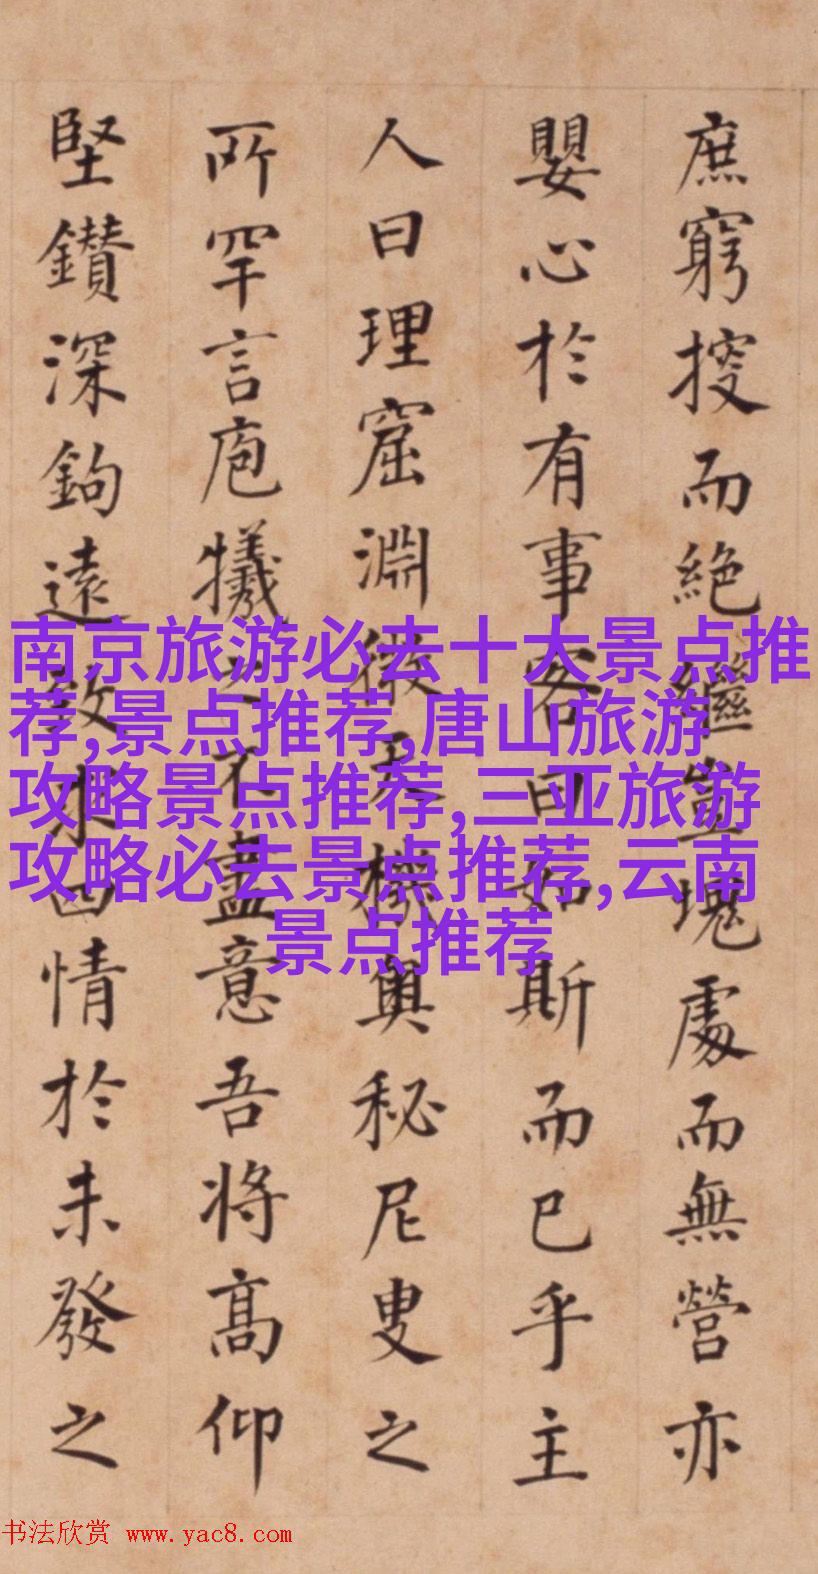 庶窮搜而絶繼豈塊處而無營亦
嬰心於有事客曰如斯而已乎主
人曰理窟淵微天機奧秘尼叟之
所罕言庖犧之不盡意吾將高仰
堅鑽深鉤遠致求四情於未發之
南京旅游必去十大景点推
荐,景点推荐,唐山旅游
攻略景点推荐,三亚旅游
攻略必去景点推荐,云南
景点推荐
书法欣赏 www.yac8.com